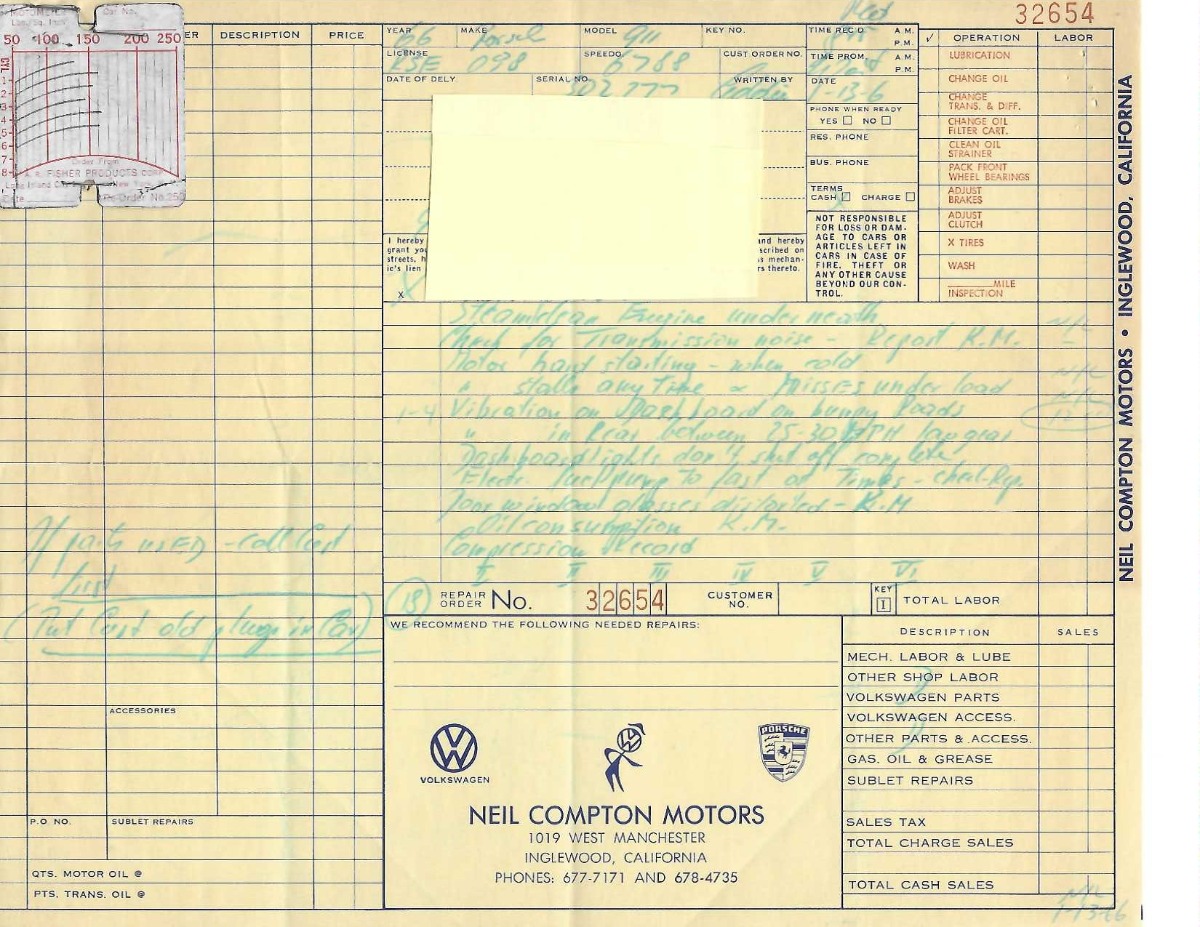 32654
MOTOMETER
Lbs./Sq. Inch
Car No.
50 100 150 200 250
CYL.
1
2
3
4
5
6
7
8
Order From
A. R. FISHER PRODUCTS CORP.
Long Island City New York
Date
Re-Order No. 250
DESCRIPTION PRICE
YEAR 66 MAKE MODEL 911 KEY NO.
LICENSE RSE 098 SPEEDO. 6788 CUST ORDER NO.
DATE OF DELY. SERIAL NO. 302 777 WRITTEN BY Eddie
TIME REC'D A.M. P.M.
TIME PROM. A.M. P.M.
DATE 1-13-6
PHONE WHEN READY
YES NO
RES. PHONE
BUS. PHONE
TERMS
CASH CHARGE
NOT RESPONSIBLE
FOR LOSS OR DAM-
AGE TO CARS OR
ARTICLES LEFT IN
CARS IN CASE OF
FIRE, THEFT OR
ANY OTHER CAUSE
BEYOND OUR CON-
TROL.
I hereby
grant you
streets, h
ic's lien
and hereby
scribed on
s mechan-
rs thereto.
X
✓ OPERATION LABOR
LUBRICATION
CHANGE OIL
CHANGE
TRANS. & DIFF.
CHANGE OIL
FILTER CART.
CLEAN OIL
STRAINER
PACK FRONT
WHEEL BEARINGS
ADJUST
BRAKES
ADJUST
CLUTCH
X TIRES
WASH
MILE
INSPECTION
NEIL COMPTON MOTORS • INGLEWOOD, CALIFORNIA
Steamclean Engine underneath N/C
Check for Transmission noise - Report R.M.
Motor hard starting - when cold N/C
" stalls any time or Misses under load N/C
1-4 Vibration on Dashboard on bumpy Roads
" in Rear between 25-30 MPH
Dashboardlights don't shut off complete
Electr. fuelpump to fast at Times -
Door window glasses distorted - R.M
Oil consumption R.M.
Compression Record
I II III IV V VI
If parts USED - call Cost
first
(Put Cost old plugs in Car)
18
REPAIR ORDER No. 32654 CUSTOMER NO. KEY 1 TOTAL LABOR
WE RECOMMEND THE FOLLOWING NEEDED REPAIRS:
DESCRIPTION SALES
MECH. LABOR & LUBE
OTHER SHOP LABOR
VOLKSWAGEN PARTS
VOLKSWAGEN ACCESS.
OTHER PARTS & ACCESS.
GAS. OIL & GREASE
SUBLET REPAIRS
SALES TAX
TOTAL CHARGE SALES
TOTAL CASH SALES
N/C
1-13-66
ACCESSORIES
P.O. NO. SUBLET REPAIRS
QTS. MOTOR OIL @
PTS. TRANS. OIL @
VOLKSWAGEN
PORSCHE
NEIL COMPTON MOTORS
1019 WEST MANCHESTER
INGLEWOOD, CALIFORNIA
PHONES: 677-7171 AND 678-4735